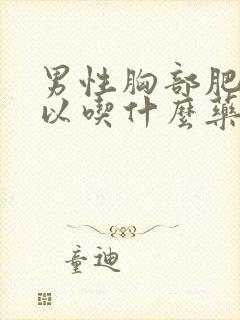 男性胸部肥
以喫什麼藥
童迪